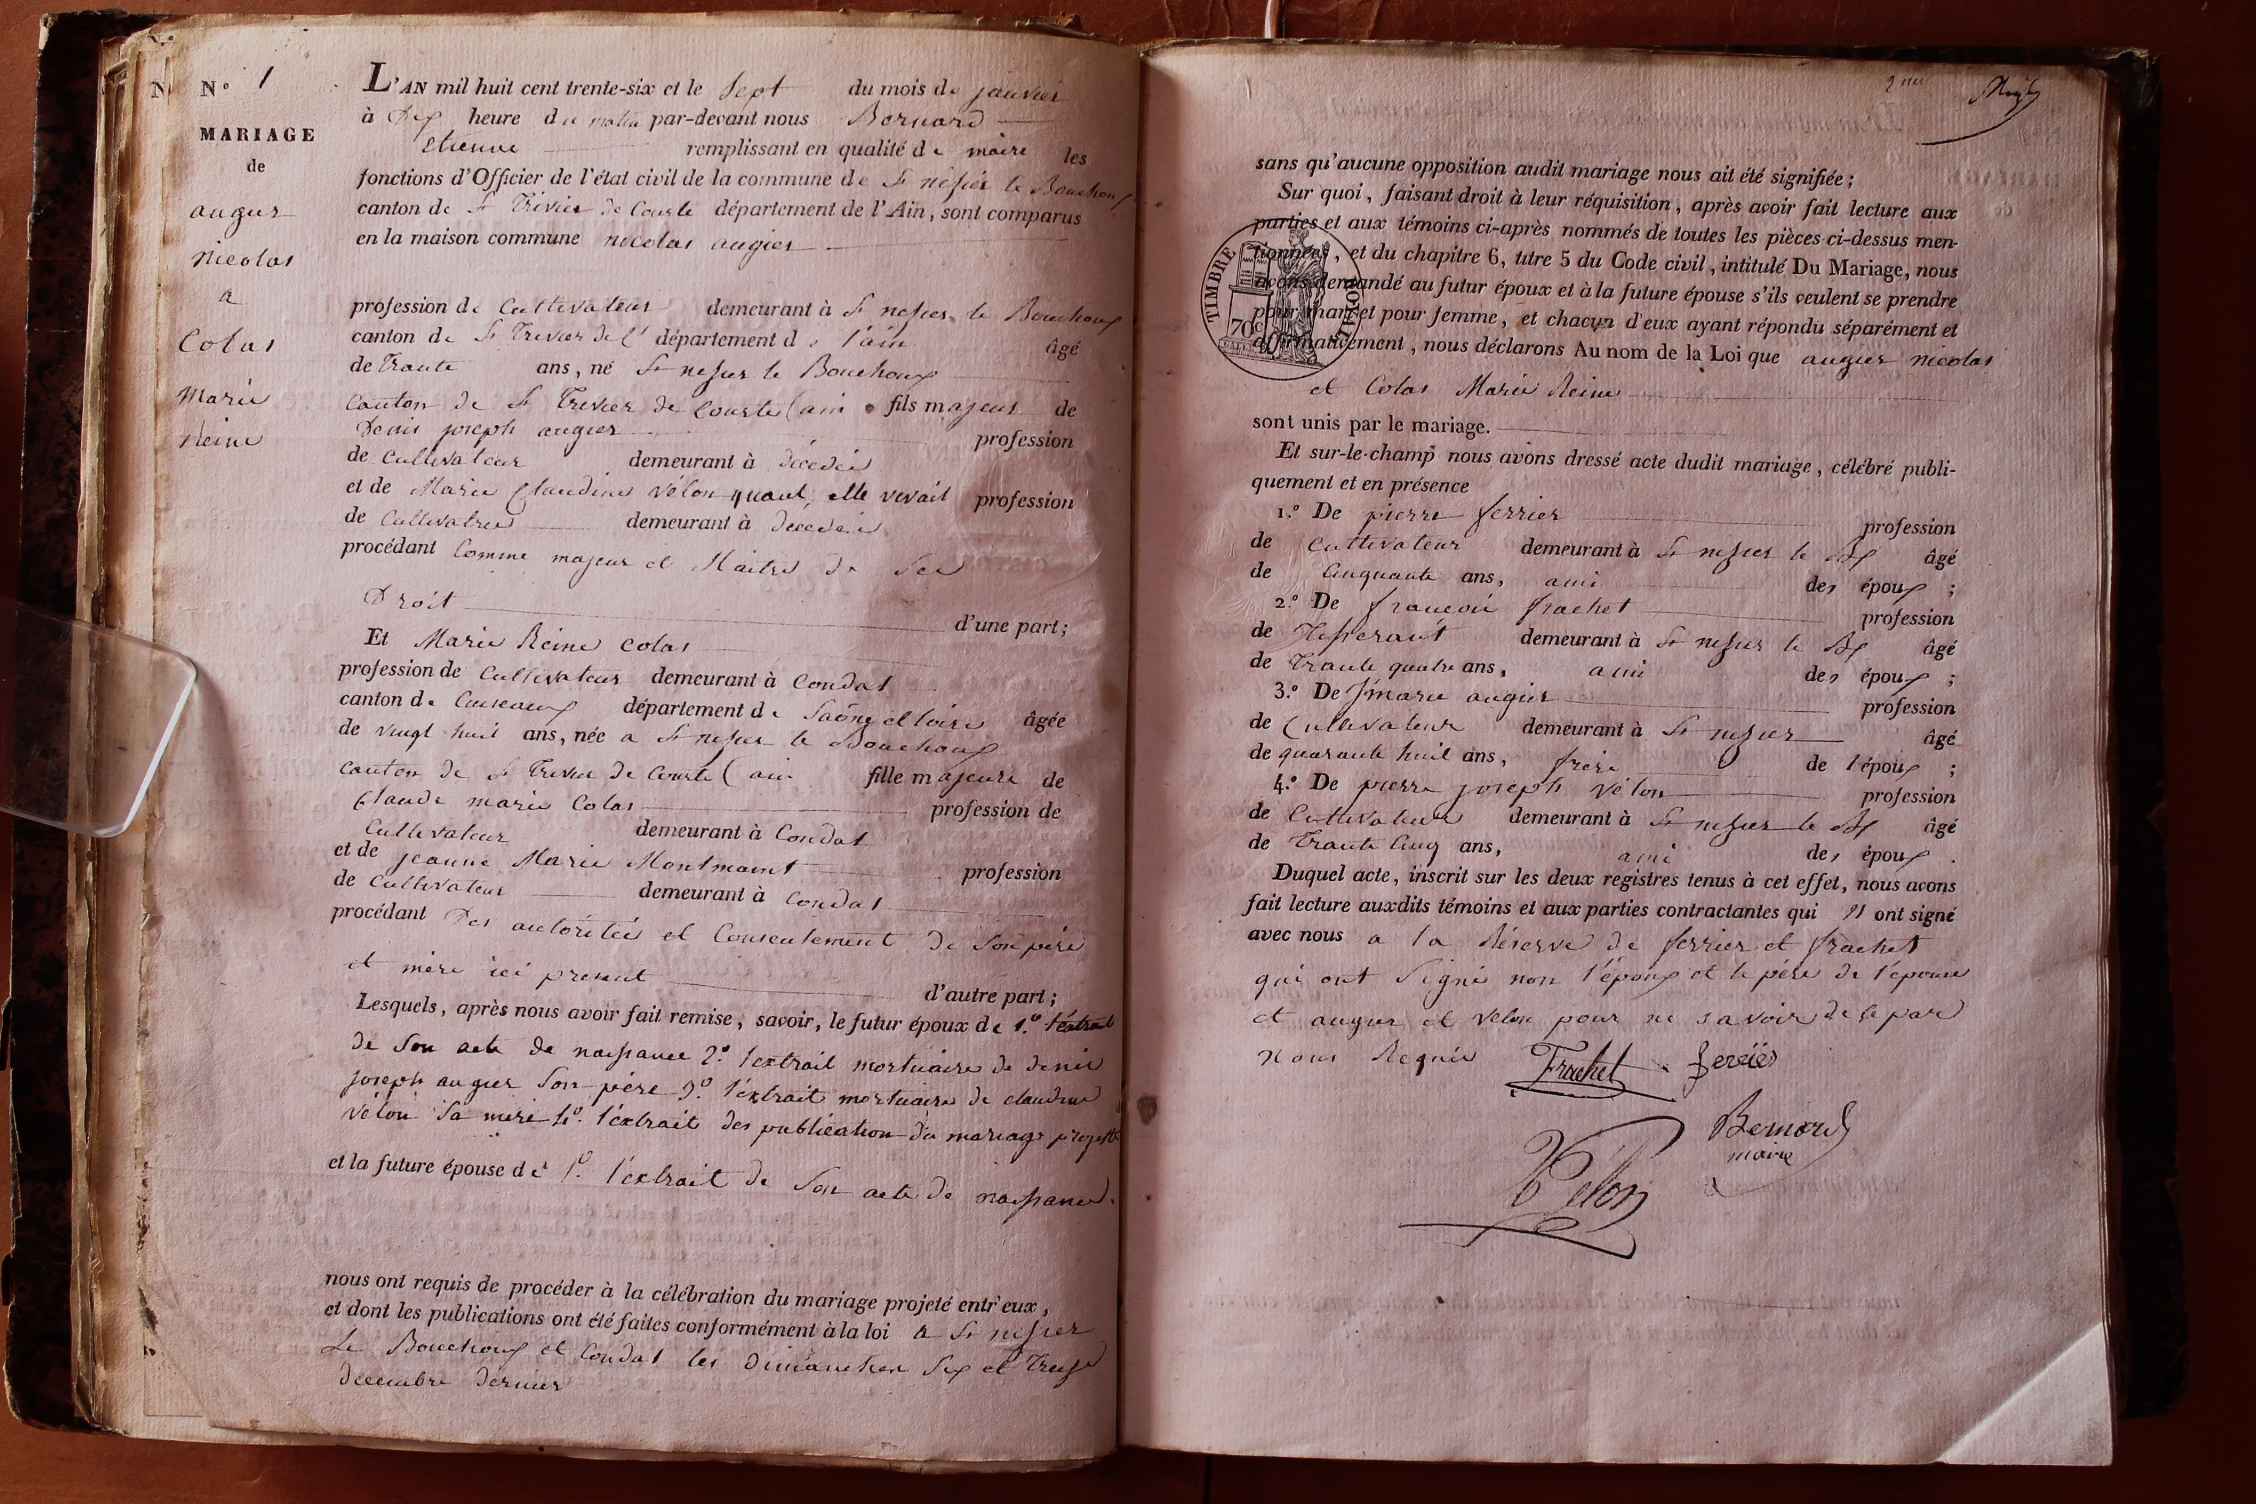 N N.° 1
MARIAGE
de
augier
nicolas
a
Colas
Marie
Reine
L'AN mil huit cent trente-six et le Sept du mois de janvier
à Dix heure du matin par-devant nous Bernard
etienne remplissant en qualité de maire les
fonctions d'Officier de l'état civil de la commune de St nisier le Bouchoux
canton de St Trivier de Courte département de l'Ain, sont comparus
en la maison commune nicolas augier
profession de Cultivateur demeurant à St nisier le Bouchoux
canton de St Trivier de C département de l'ain âgé
de trante ans, né St nisier le Bouchoux
canton de St Trivier de Courte (ain fils majeur de
Denis joseph augier profession
de Cultivateur demeurant à décédé
et de Marie Claudine Vélon quant elle vivait profession
de Cultivatrice demeurant à décédée
procédant Comme majeur et Maitre de Ses
Droit d'une part;
Et Marie Reine Colas
profession de Cultivateur demeurant à Condal
canton de Cuiseaux département de Saône et loire âgée
de vingt huit ans, née a St nisier le Bouchoux
canton de St Trivier de Courte (ain fille majeure de
Claude marie Colas profession de
Cultivateur demeurant à Condal
et de jeanne Marie Montmaint profession
de Cultivateur demeurant à Condal
procédant Des autoritées et Consentement de Son père
et mère ici present d'autre part;
Lesquels, après nous avoir fait remise, savoir, le futur époux de 1.° l'extrait
de Son acte de naissance 2.° l'extrait mortuaire de denis
joseph augier Son père 3.° l'extrait mortuaire de claudine
Vélon Sa mère 4.° l'extrait des publication du mariage projetté
et la future épouse de 1.° l'extrait de Son acte de naissance.
nous ont requis de procéder à la célébration du mariage projeté entr'eux,
et dont les publications ont été faites conformément à la loi a St nisier
Le Bouchoux et Condal les dimanches Six et Treize
décembre dernier
2me
sans qu'aucune opposition audit mariage nous ait été signifiée;
Sur quoi, faisant droit à leur réquisition, après avoir fait lecture aux
parties et aux témoins ci-après nommés de toutes les pièces ci-dessus men-
tionnées, et du chapitre 6, titre 5 du Code civil, intitulé Du Mariage, nous
avons demandé au futur époux et à la future épouse s'ils veulent se prendre
pour mari et pour femme, et chacun d'eux ayant répondu séparément et
affirmativement, nous déclarons Au nom de la Loi que augier nicolas
TIMBRE ROYAL
70 c
et Colas Marie Reine
sont unis par le mariage.
Et sur-le-champ nous avons dressé acte dudit mariage, célébré publi-
quement et en présence
1.° De pierre ferrier profession
de Cultivateur demeurant à St nisier le Bx âgé
de Cinquante ans, ami des époux ;
2.° De françois frachet profession
de Tisserant demeurant à St nisier le Bx âgé
de Trante quatre ans, ami des époux ;
3.° De J marie augier profession
de Cultivateur demeurant à St nisier âgé
de quarante huit ans, frère de l'époux ;
4.° De pierre joseph Vélon profession
de Cultivateur demeurant à St nisier le Bx âgé
de Trante Cinq ans, ami des époux .
Duquel acte, inscrit sur les deux registres tenus à cet effet, nous avons
fait lecture auxdits témoins et aux parties contractantes qui ont signé
avec nous a la Réserve de ferrier et frachet
qui ont Signé non l'époux et le père de l'épouse
et augier et Velon pour ne savoir de ce par
nous Requis Frachet
Bernard
maire
Velon